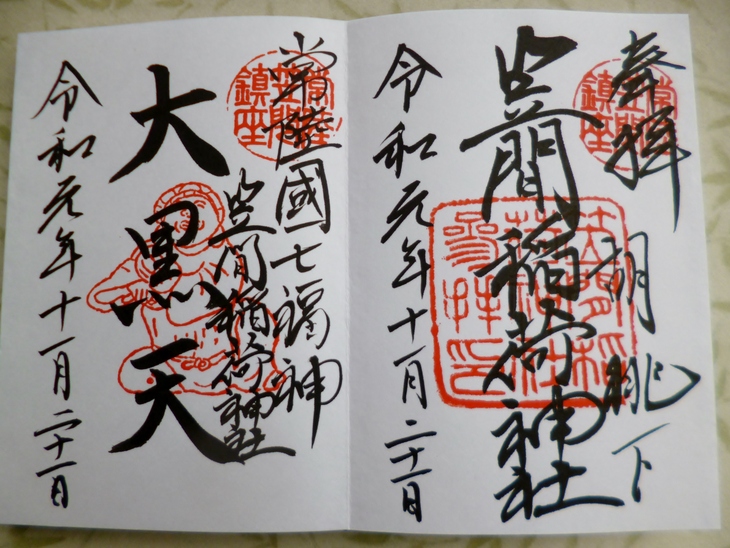 奉拝
胡桃下
笠間稲荷神社
令和元年十一月二十一日
常陸國七福神
笠間稲荷神社
大黒天
令和元年十一月二十一日